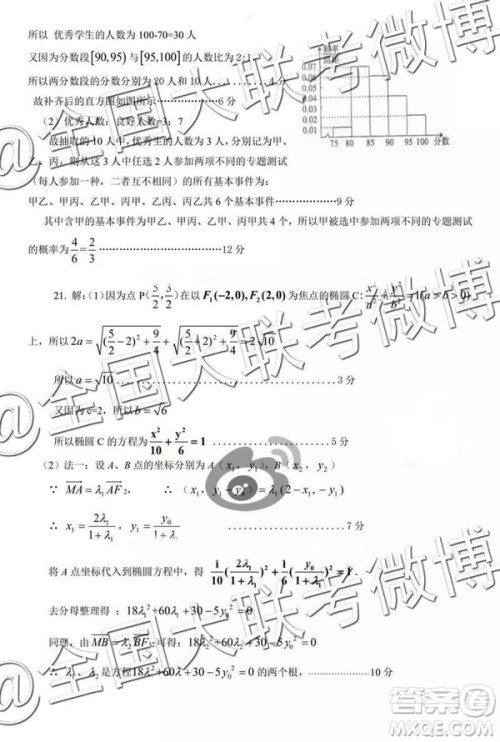 所以 优秀学生的人数为 100-70=30 人
又因为分数段[90,95)与[95,100]的人数比为 2:1
所以两分数段的分数分别为 20 人和 10 人
故补齐后的直方图如图所示 ……………6 分
(2) 优秀人数:良好人数=3:7
故抽取的 10 人中,优秀的人数为 3 人,分别记为甲、
乙、丙;则从这 3 人中任选 2 人参加两项不同的专题测试
(每人参加一种,二者互不相同)的所有基本事件为:
甲乙、甲丙、乙甲、乙丙、丙甲、丙乙共 6 个基本事件………………9 分
其中含甲的基本事件为甲乙、甲丙、乙甲、丙甲共 4 个,所以甲被选中参加两项不同的专题测试
的概率为 4/6=2/3 ………………12 分
频率
组距
0.07
0.06
0.05
0.04
0.03
0.02
0.01
75 80 85 90 95 100 分数
21. 解:(1)因为点 P(5/2,3/2)在以 F₁(-2,0),F₂(2,0) 为焦点的椭圆 C: x²/a²+y²/b²=1(a>b>0)
上,所以 2a=√((5/2-2)²+9/4)+√((5/2+2)²+9/4)=2√10
所以 a=√10 ...................3 分
又因为 c=2,所以 b=√6
所以椭圆 C 的方程为 x²/10+y²/6=1 ...............5 分
(2) 法一:设 A、B 点的坐标分别为 A(x₁,y₁),B(x₂,y₂)
∵ MA=λ₁AF₂, ∴ (x₁,y₁-y₀)=λ₁(2-x₁,-y₁)
∴ x₁=2λ₁/(1+λ₁),y₁=y₀/(1+λ₁) ...............7 分
将 A 点坐标代入到椭圆方程中,得 1/10(2λ₁/(1+λ₁))²+1/6(y₀/(1+λ₁))²=1
去分母整理得:18λ₁²+60λ₁+30-5y₀²=0
同理,由 MB=λ₂BF₂ 可得:18λ₂²+60λ₂+30-5y₀²=0
∴ λ₁,λ₂是方程18λ²+60λ+30-5y₀²=0 的两个根,...............10 分
@全国大联考微博
@全国大联考微博
@全国大联考微博
答案圈
MXQE.COM